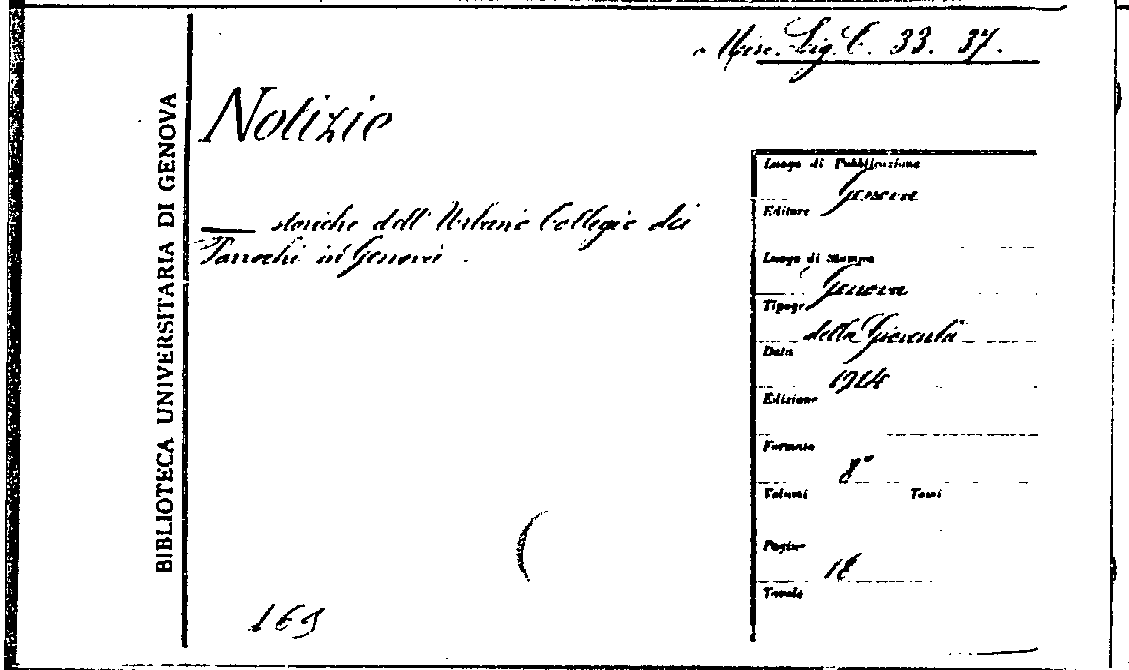 Misc. Lig. C. 33. 37.
BIBLIOTECA UNIVERSITARIA DI GENOVA
Notizie
— storiche dell'Urbano Collegio dei
Parrochi in Genova.
169
Luogo di Pubblicazione
Genova
Editore
Luogo di Stampa
Genova
Tipogr.
della Gioventù
Data
1914
Edizione
Formato
8°
Volumi Tomi
Pagine
18
Tavole